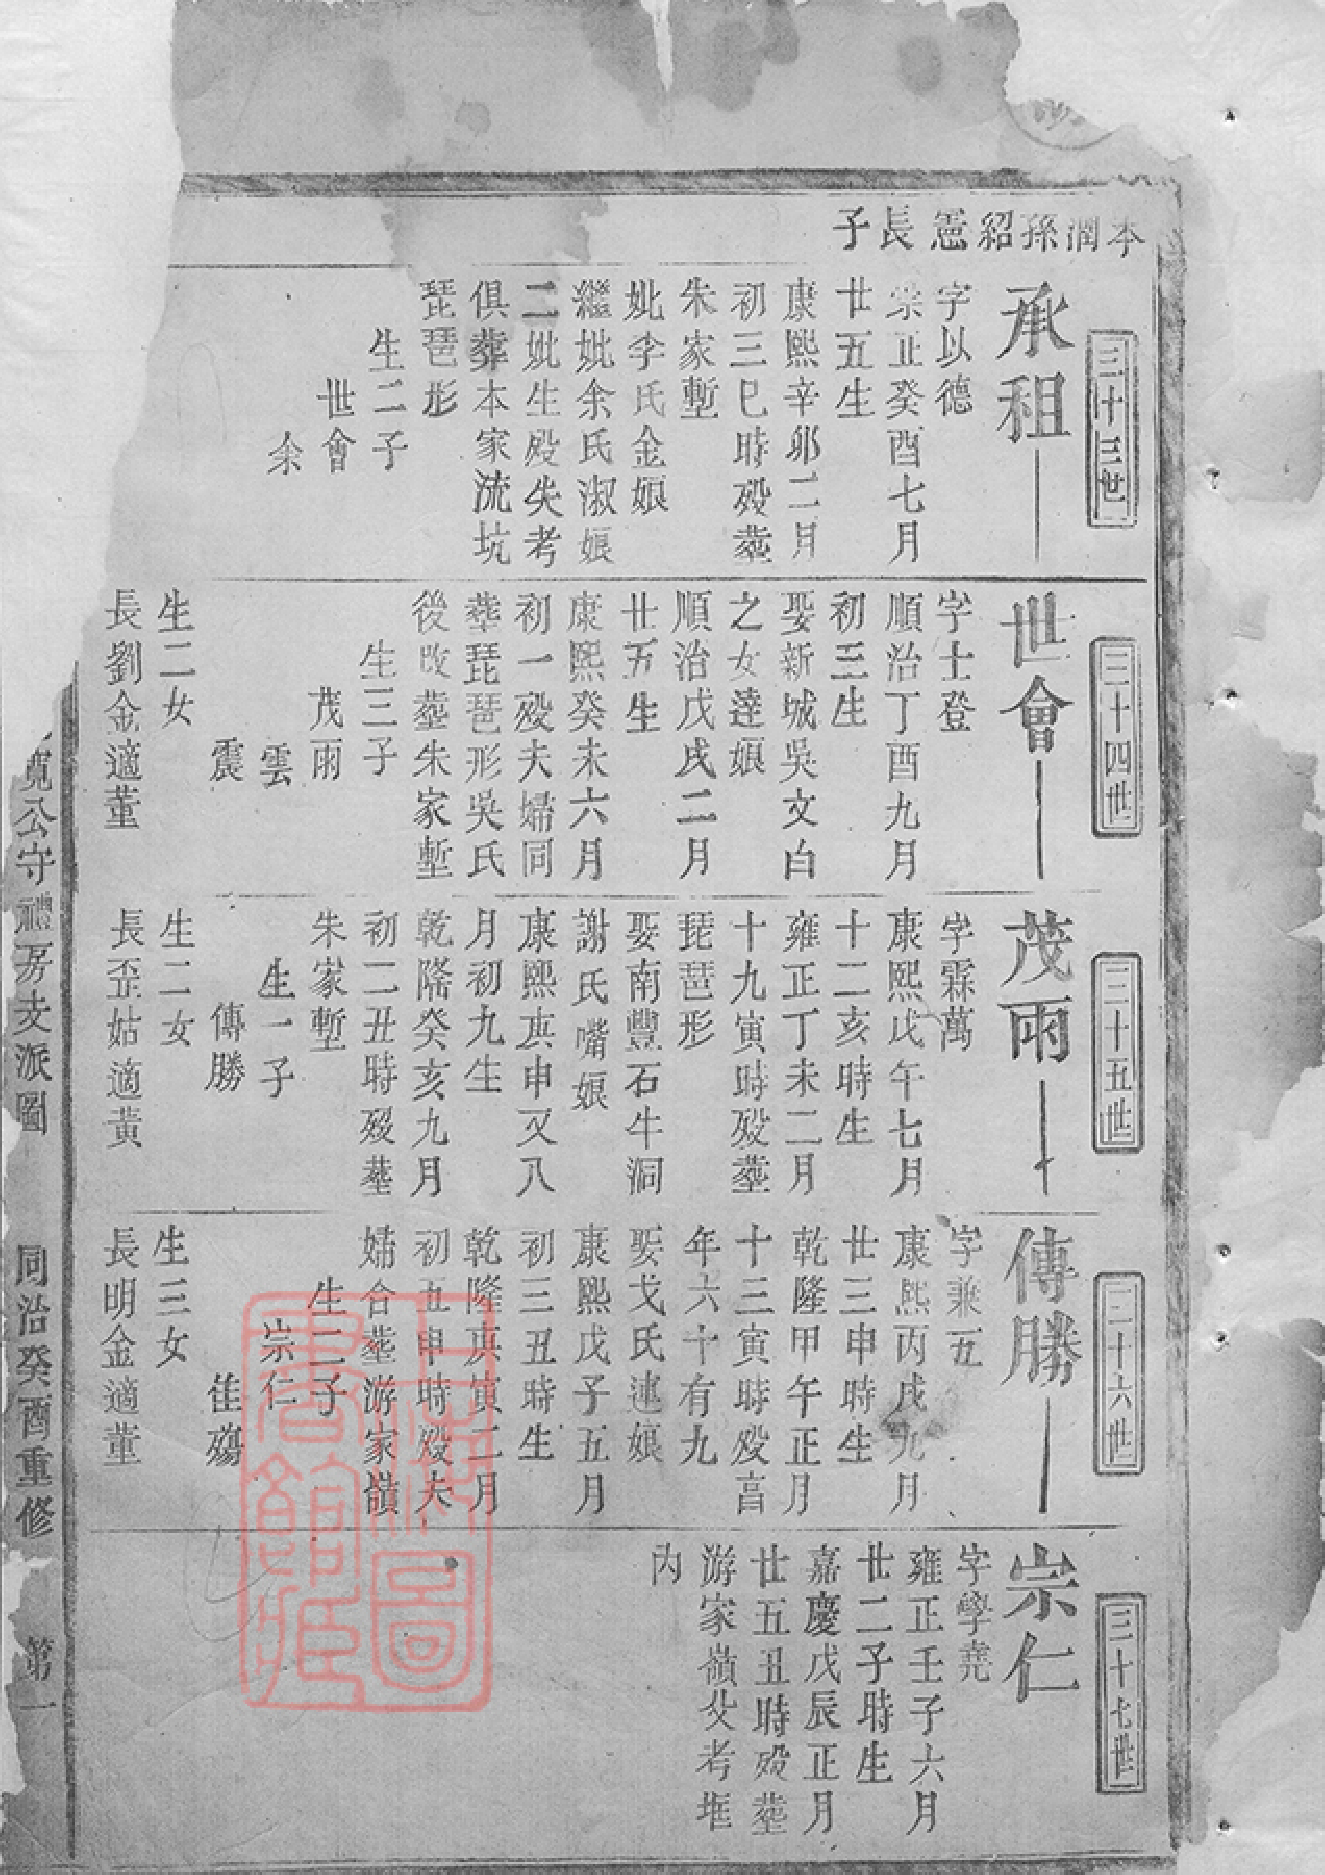 本潤孫紹憲長子
三十三世
承租
字以德
崇正癸酉七月
廿五生
康熙辛卯二月
初三巳時殁塟
朱家塹
妣李氏金娘
繼妣余氏淑娘
二妣生殁失考
俱葬本家流坑
琵琶形
生二子
世會
余
三十四世
世會
字士登
順治丁酉九月
初三生
娶新城吳文白
之女達娘
順治戊戌二月
廿五生
康熙癸未六月
初一殁夫婦同
葬琵琶形吳氏
後改塟朱家塹
生三子
茂雨
雲
震
生二女
長劉金適董
三十五世
茂雨
字霖萬
康熙戊午七月
十二亥時生
雍正丁未二月
十九寅時殁塟
琵琶形
娶南豐石牛洞
謝氏嘴娘
康熙庚申又八
月初九生
乾隆癸亥九月
初二丑時殁塟
朱家塹
生一子
傳勝
生二女
長歪姑適黃
三十六世
傳勝
字兼五
康熙丙戌九月
廿三申時生
乾隆甲午正月
十三寅時殁亯
年六十有九
娶戈氏連娘
康熙戊子五月
初三丑時生
乾隆庚寅二月
初五申時殁夫
婦合塟游家嶺
生二子
宗仁
隹殤
生三女
長明金適董
三十七世
宗仁
字學堯
雍正壬子六月
廿二子時生
嘉慶戊辰正月
廿五丑時殁塟
游家嶺父考堆
內
寬公守禮房支派圖
同治癸酉重修
第一
上海圖書館藏